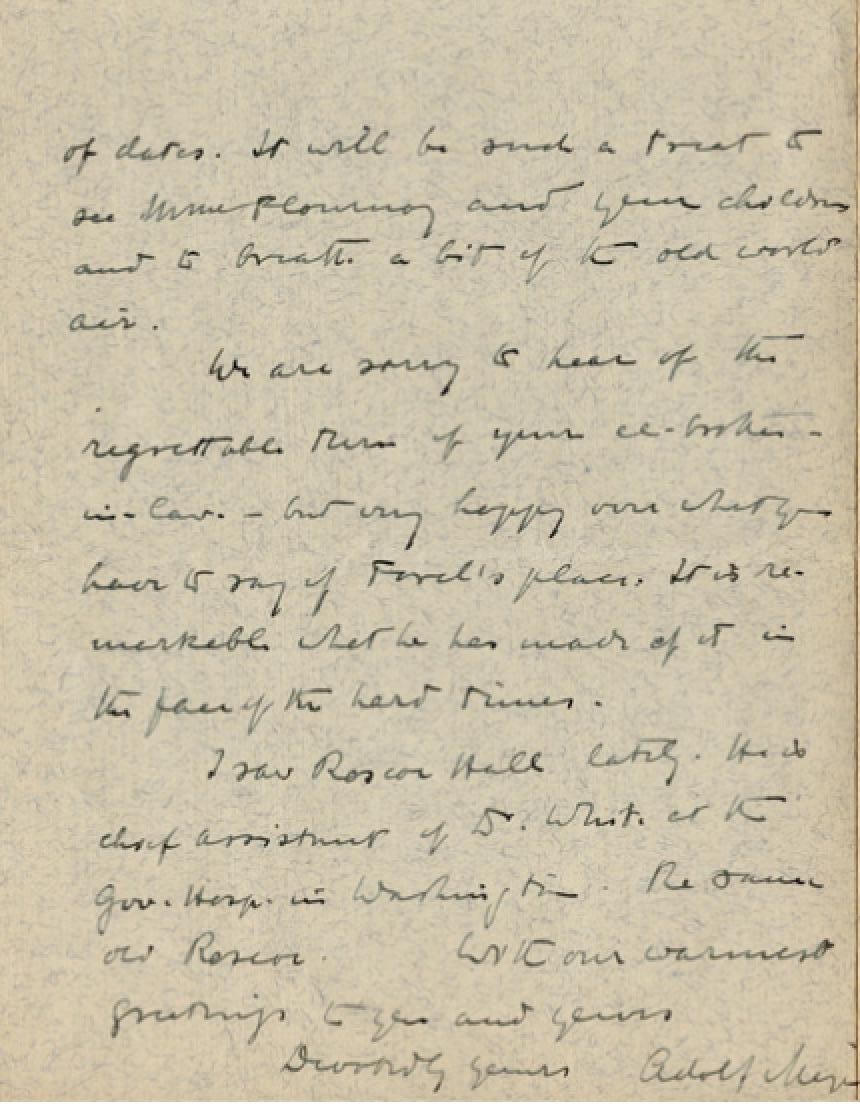 of dates. It will be such a treat to
see Mme Flournoy and your children
and to breathe a bit of the old world
air.
We are sorry to hear of the
regrettable turn of your ex-brother-
in-law. - but very happy over what you
have to say of Forel's place. It is re-
markable what he has made of it in
the face of the hard times.
I saw Roscoe Hall lately. He is
chief assistant of Dr. White at the
Gov. Hosp. in Washington. The same
old Roscoe. With our warmest
greetings to you and yours
Devotedly yours Adolf Meyer